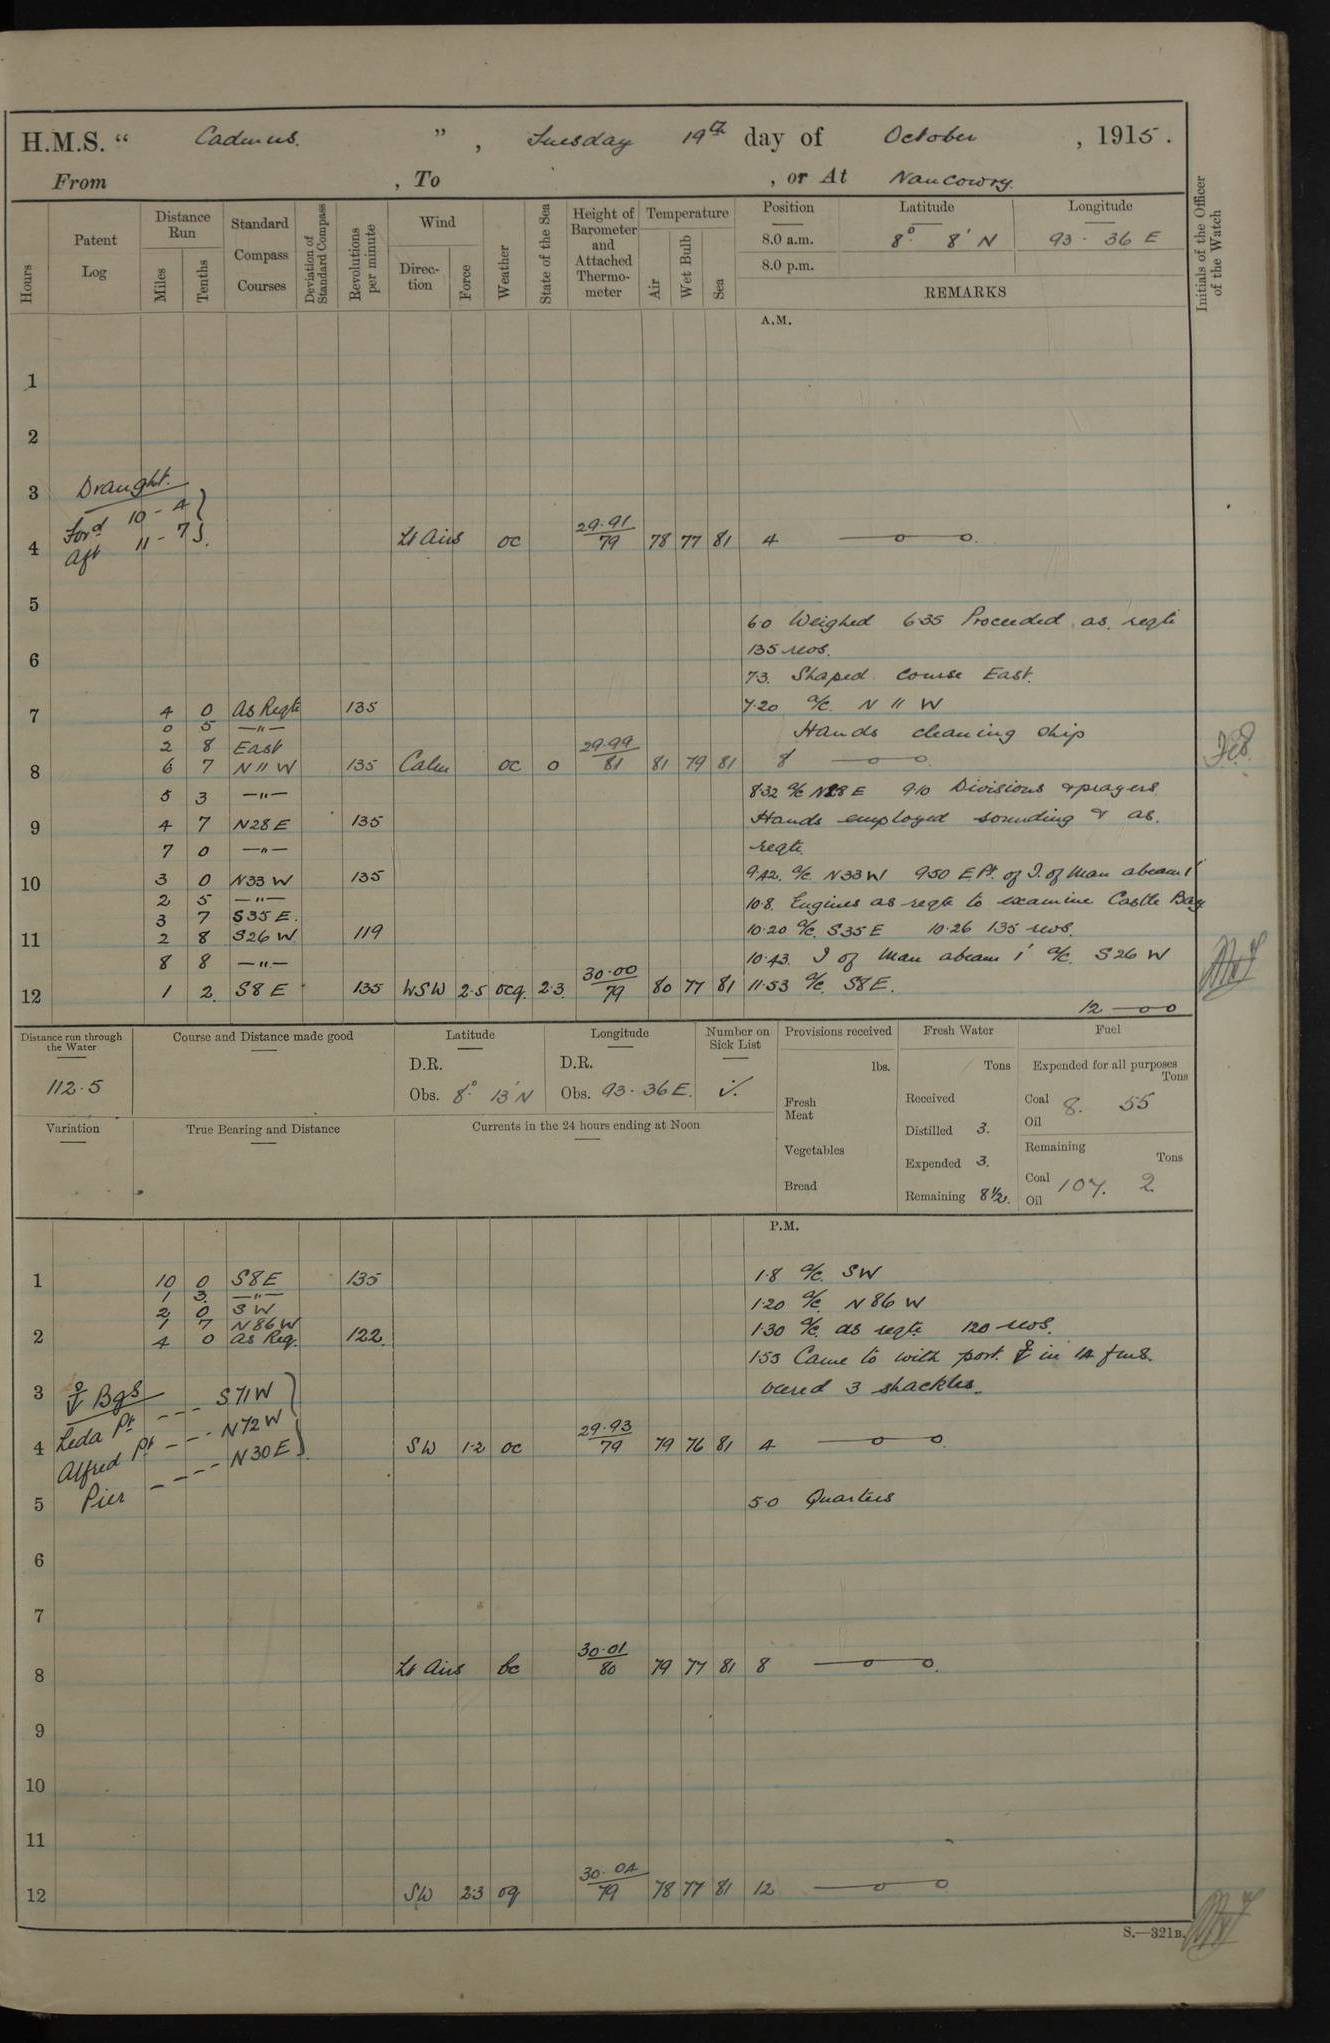 H.M.S. “ Cadmus. ”, Tuesday 19th day of October, 1915.
From , To , or At Nancowry.
Hours
Patent Log
Distance Run
Miles
Tenths
Standard Compass Courses
Deviation of Standard Compass
Revolutions per minute
Wind
Direction
Force
Weather
State of the Sea
Height of Barometer and Attached Thermometer
Temperature
Air
Wet Bulb
Sea
Position
Latitude
Longitude
8.0 a.m. 8° 8' N 93 - 36 E
8.0 p.m.
REMARKS
Initials of the Officer of the Watch
A.M.
1
2
3 Draught.
Ford 10 - 4
4 Aft 11 - 7 Lt Airs oc 29.91/79 78 77 81 4 —o—o.
5
6.0 Weighed 6.35 Proceeded as reqte
6 135 revs.
7.3. Shaped course East.
7 4 0 As Reqte 135 7.20 a/c. N 11 W
0 5 —"—
2 8 East Hands cleaning ship
8 6 7 N 11 W 135 Calm oc 0 29.99/81 81 79 81 8 —o—o.
5 3 —"— 8.32 a/c N28E 9.10 Divisions & prayers.
9 4 7 N28E 135 Hands employed sounding & as.
7 0 —"— reqte.
10 3 0 N33 W 135 9.42. a/c. N33W 9.50 E Pt. of I. of Man abeam 1'
2 5 —"— 10.8. Engines as reqte to examine Castle Bay
3 7 S35E.
11 2 8 S26 W 119 10.20 a/c. S35E 10.26 135 revs.
8 8 —"— 10.43. I of Man abeam 1' a/c. S26 W
12 1 2. S8E 135 WSW 2.5 ocq. 2.3. 30.00/79 80 77 81 11.53 a/c. S8E.
12 —o—o
Distance run through the Water
112.5
Course and Distance made good
Latitude
D.R.
Obs. 8° 13' N
Longitude
D.R.
Obs. 93 - 36 E.
Number on Sick List
Provisions received
lbs.
Fresh Meat
Vegetables
Bread
Fresh Water
Tons
Received
Distilled 3.
Expended 3.
Remaining 8½.
Fuel
Expended for all purposes
Tons
Coal 8. 55
Oil
Remaining
Tons
Coal 107. 2
Oil
Variation
True Bearing and Distance
Currents in the 24 hours ending at Noon
P.M.
1 10 0 S8E 135 1.8 a/c. SW
1 3. —"—
2 0 SW 1.20 a/c. N 86 W
1 7 N86W
2 4 0 as Req. 122. 1.30 a/c. as reqte 120 revs.
1.55 Came to with port ⚓ in 14 fms.
3 ⚓ Bgs veered 3 shackles.
Leda Pt --- S71W
4 Alfred Pt --- N72W SW 1.2 oc 29.93/79 79 76 81 4 —o—o.
Pier --- N30E
5 5.0 Quarters
6
7
8 Lt Airs bc 30.01/80 79 77 81 8 —o—o.
9
10
11
12 SW 2.3 oq 30.04/79 78 77 81 12 —o—o
S.—321B.